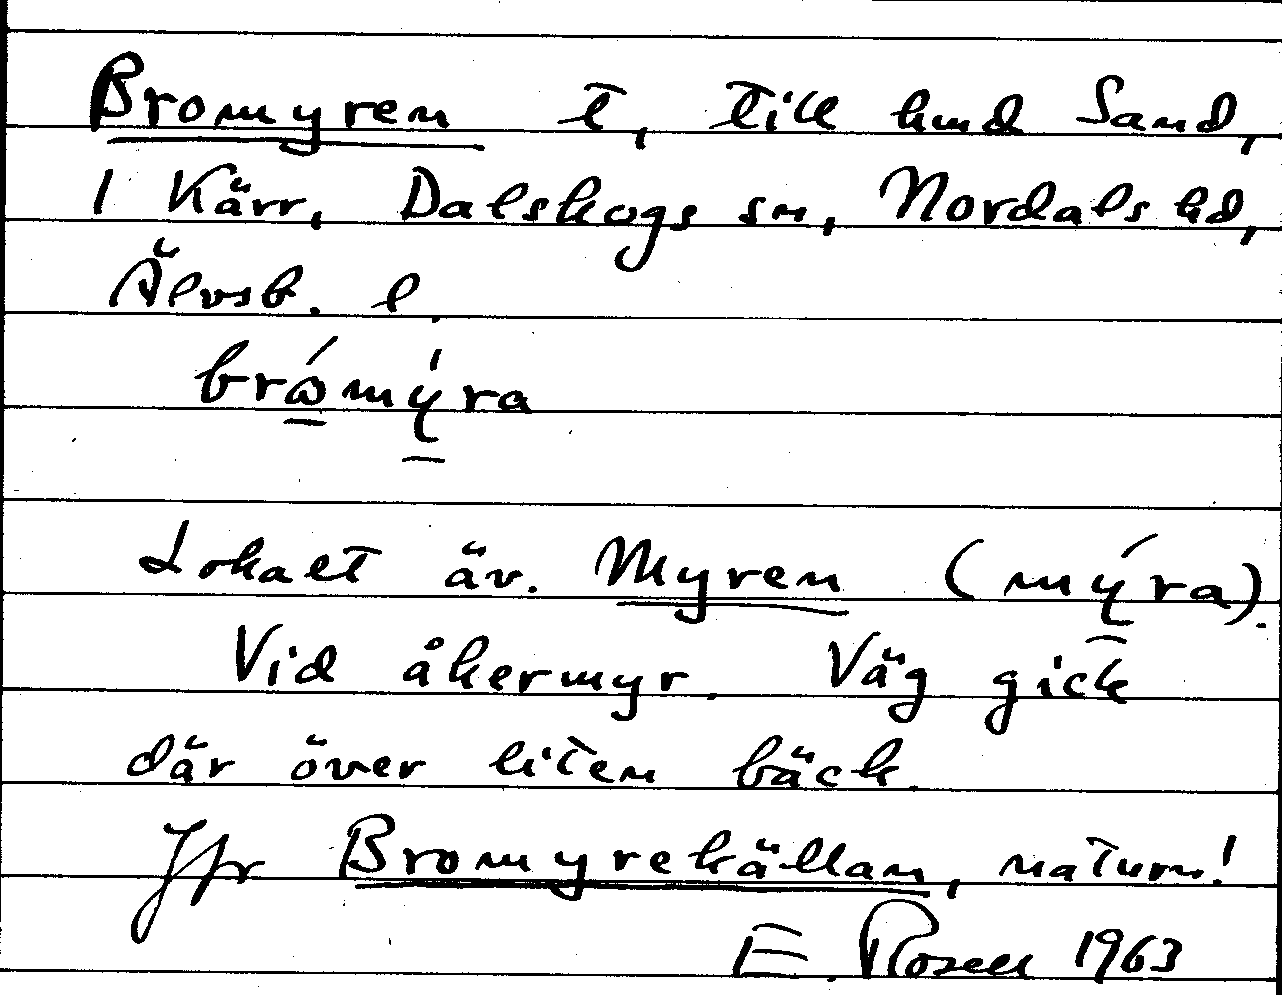 Bromyren t, till hmd Sand,
1 Kärr, Dalskogs sn, Nordals hd,
Älvsb. l.
brώmýra
Lokalt äv. Myren (mýra).
Vid åkermyr. Väg gick
där över liten bäck.
Jfr Bromyrekällan, naturn!
E. Rosell 1963